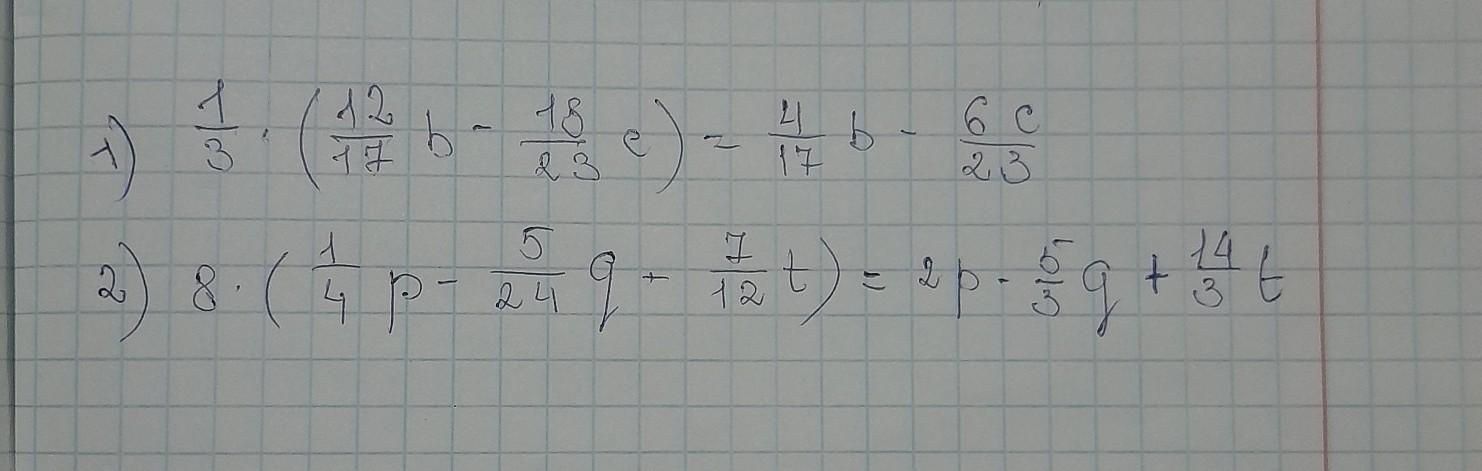 1) 1/3 · (12/17 b - 18/23 c) = 4/17 b - 6c/23
2) 8 · (1/4 p - 5/24 q + 7/12 t) = 2p - 5/3 q + 14/3 t